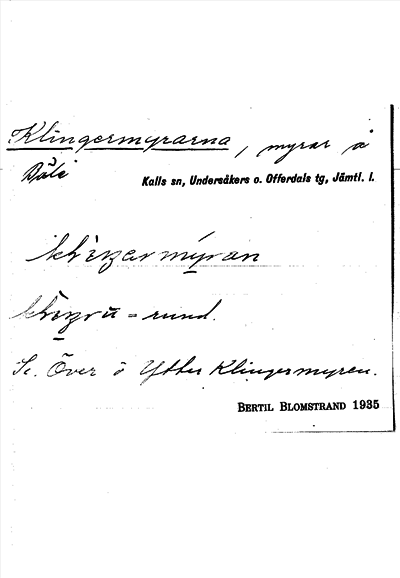 Klingermyrarna, myrar å
Kalls sn, Undersåkers o. Offerdals tg, Jämtl. l.
-rund.
Se. Över ö Ytter Klingermyren.
BERTIL BLOMSTRAND 1935